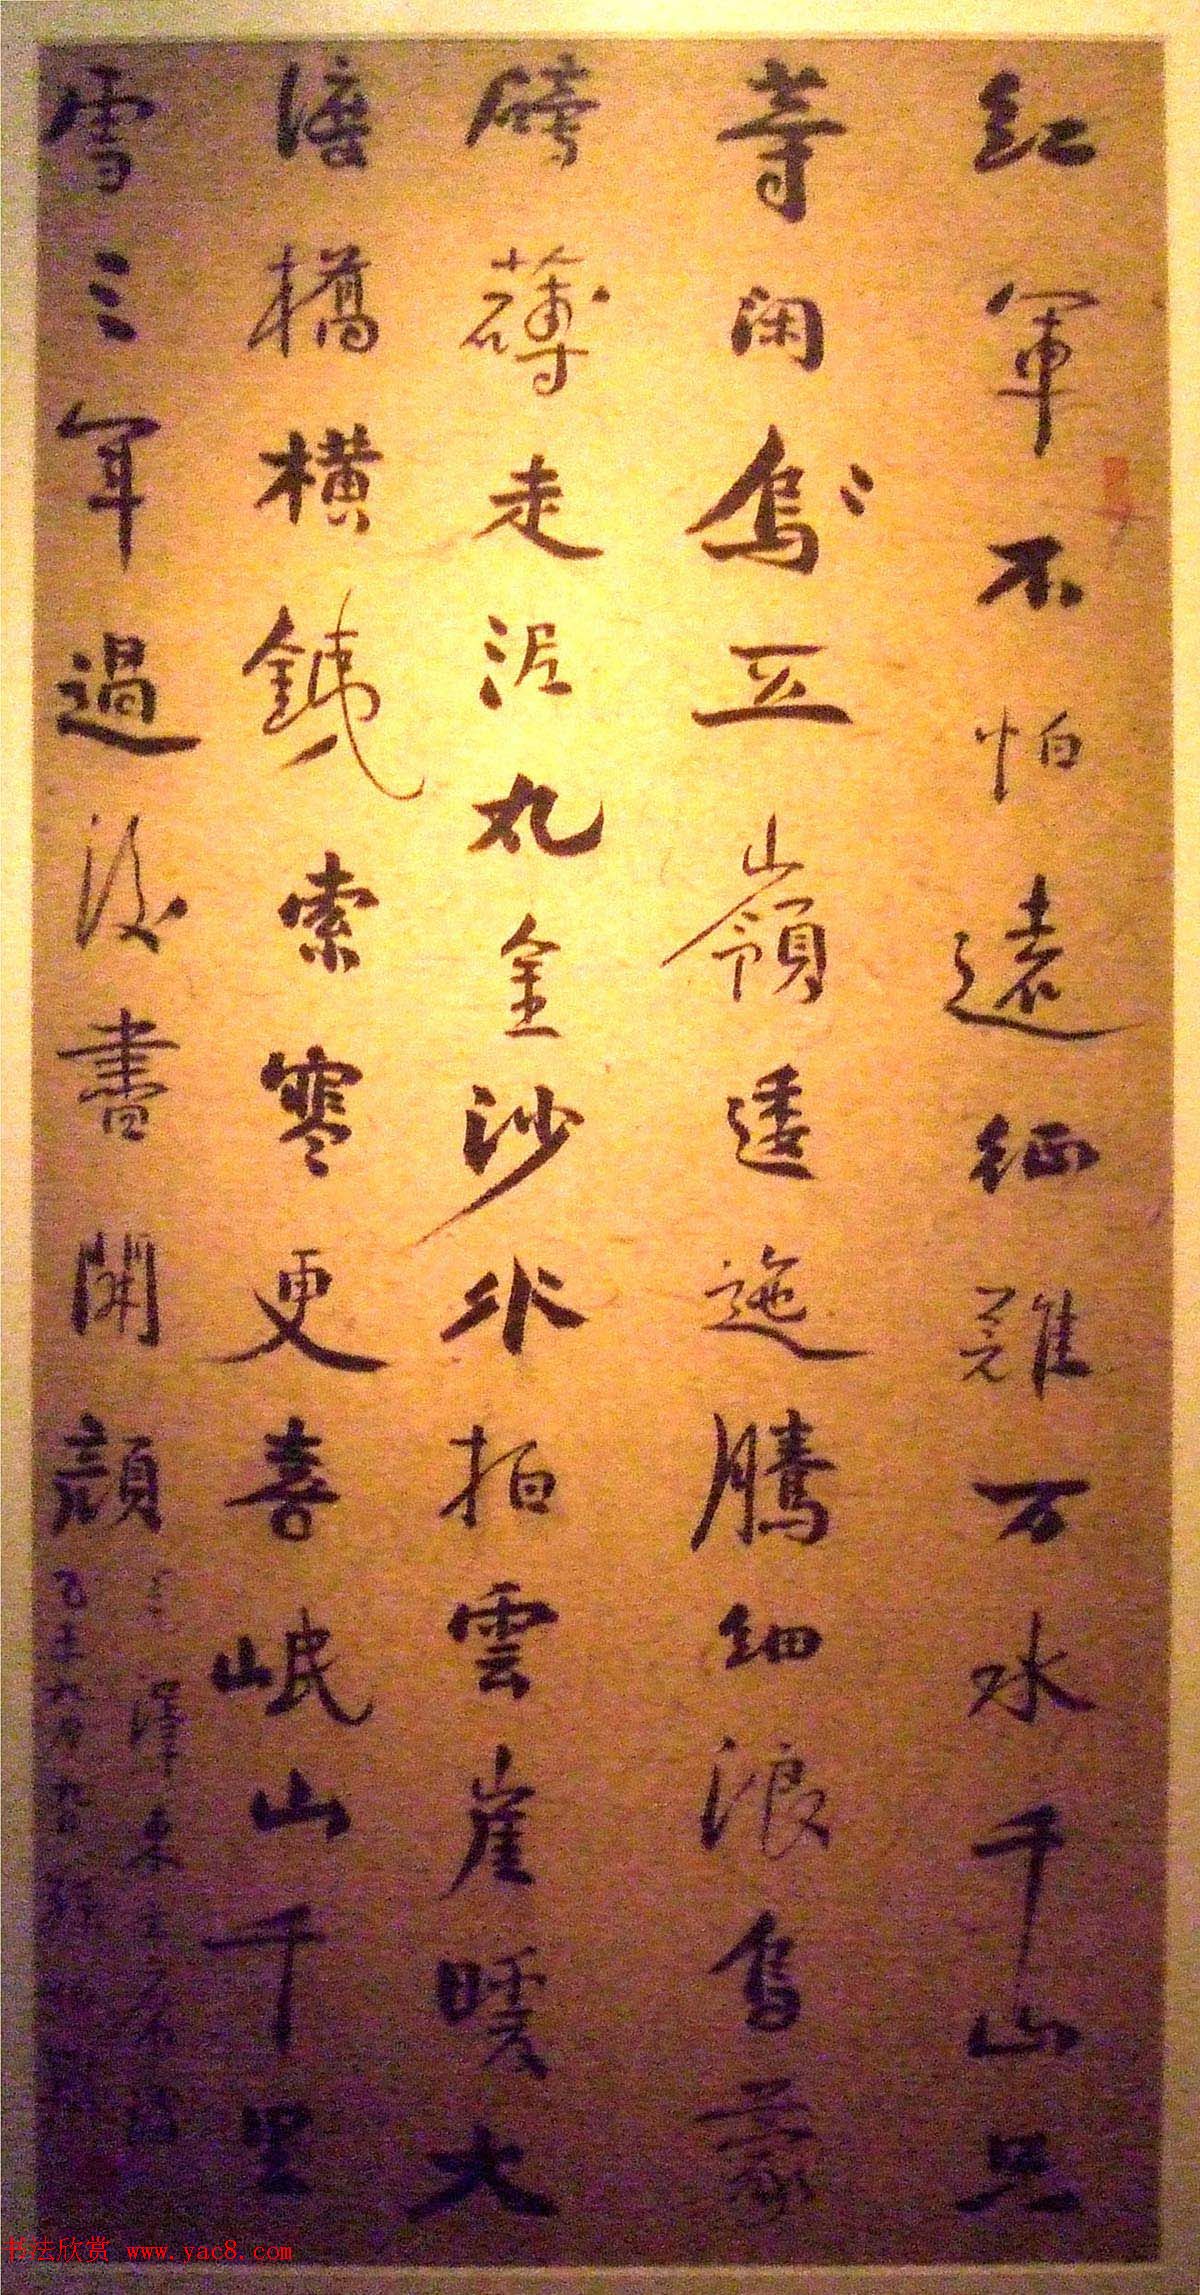 紅軍不怕遠征難万水千山只
等闲烏五嶺逶迤騰細浪烏蒙
磅礴走泥丸金沙水拍雲崖暖大
渡橋橫鐵索寒更喜岷山千里
雪三軍過後盡開顔
澤東主
六月九
书法欣赏 www.yac8.com